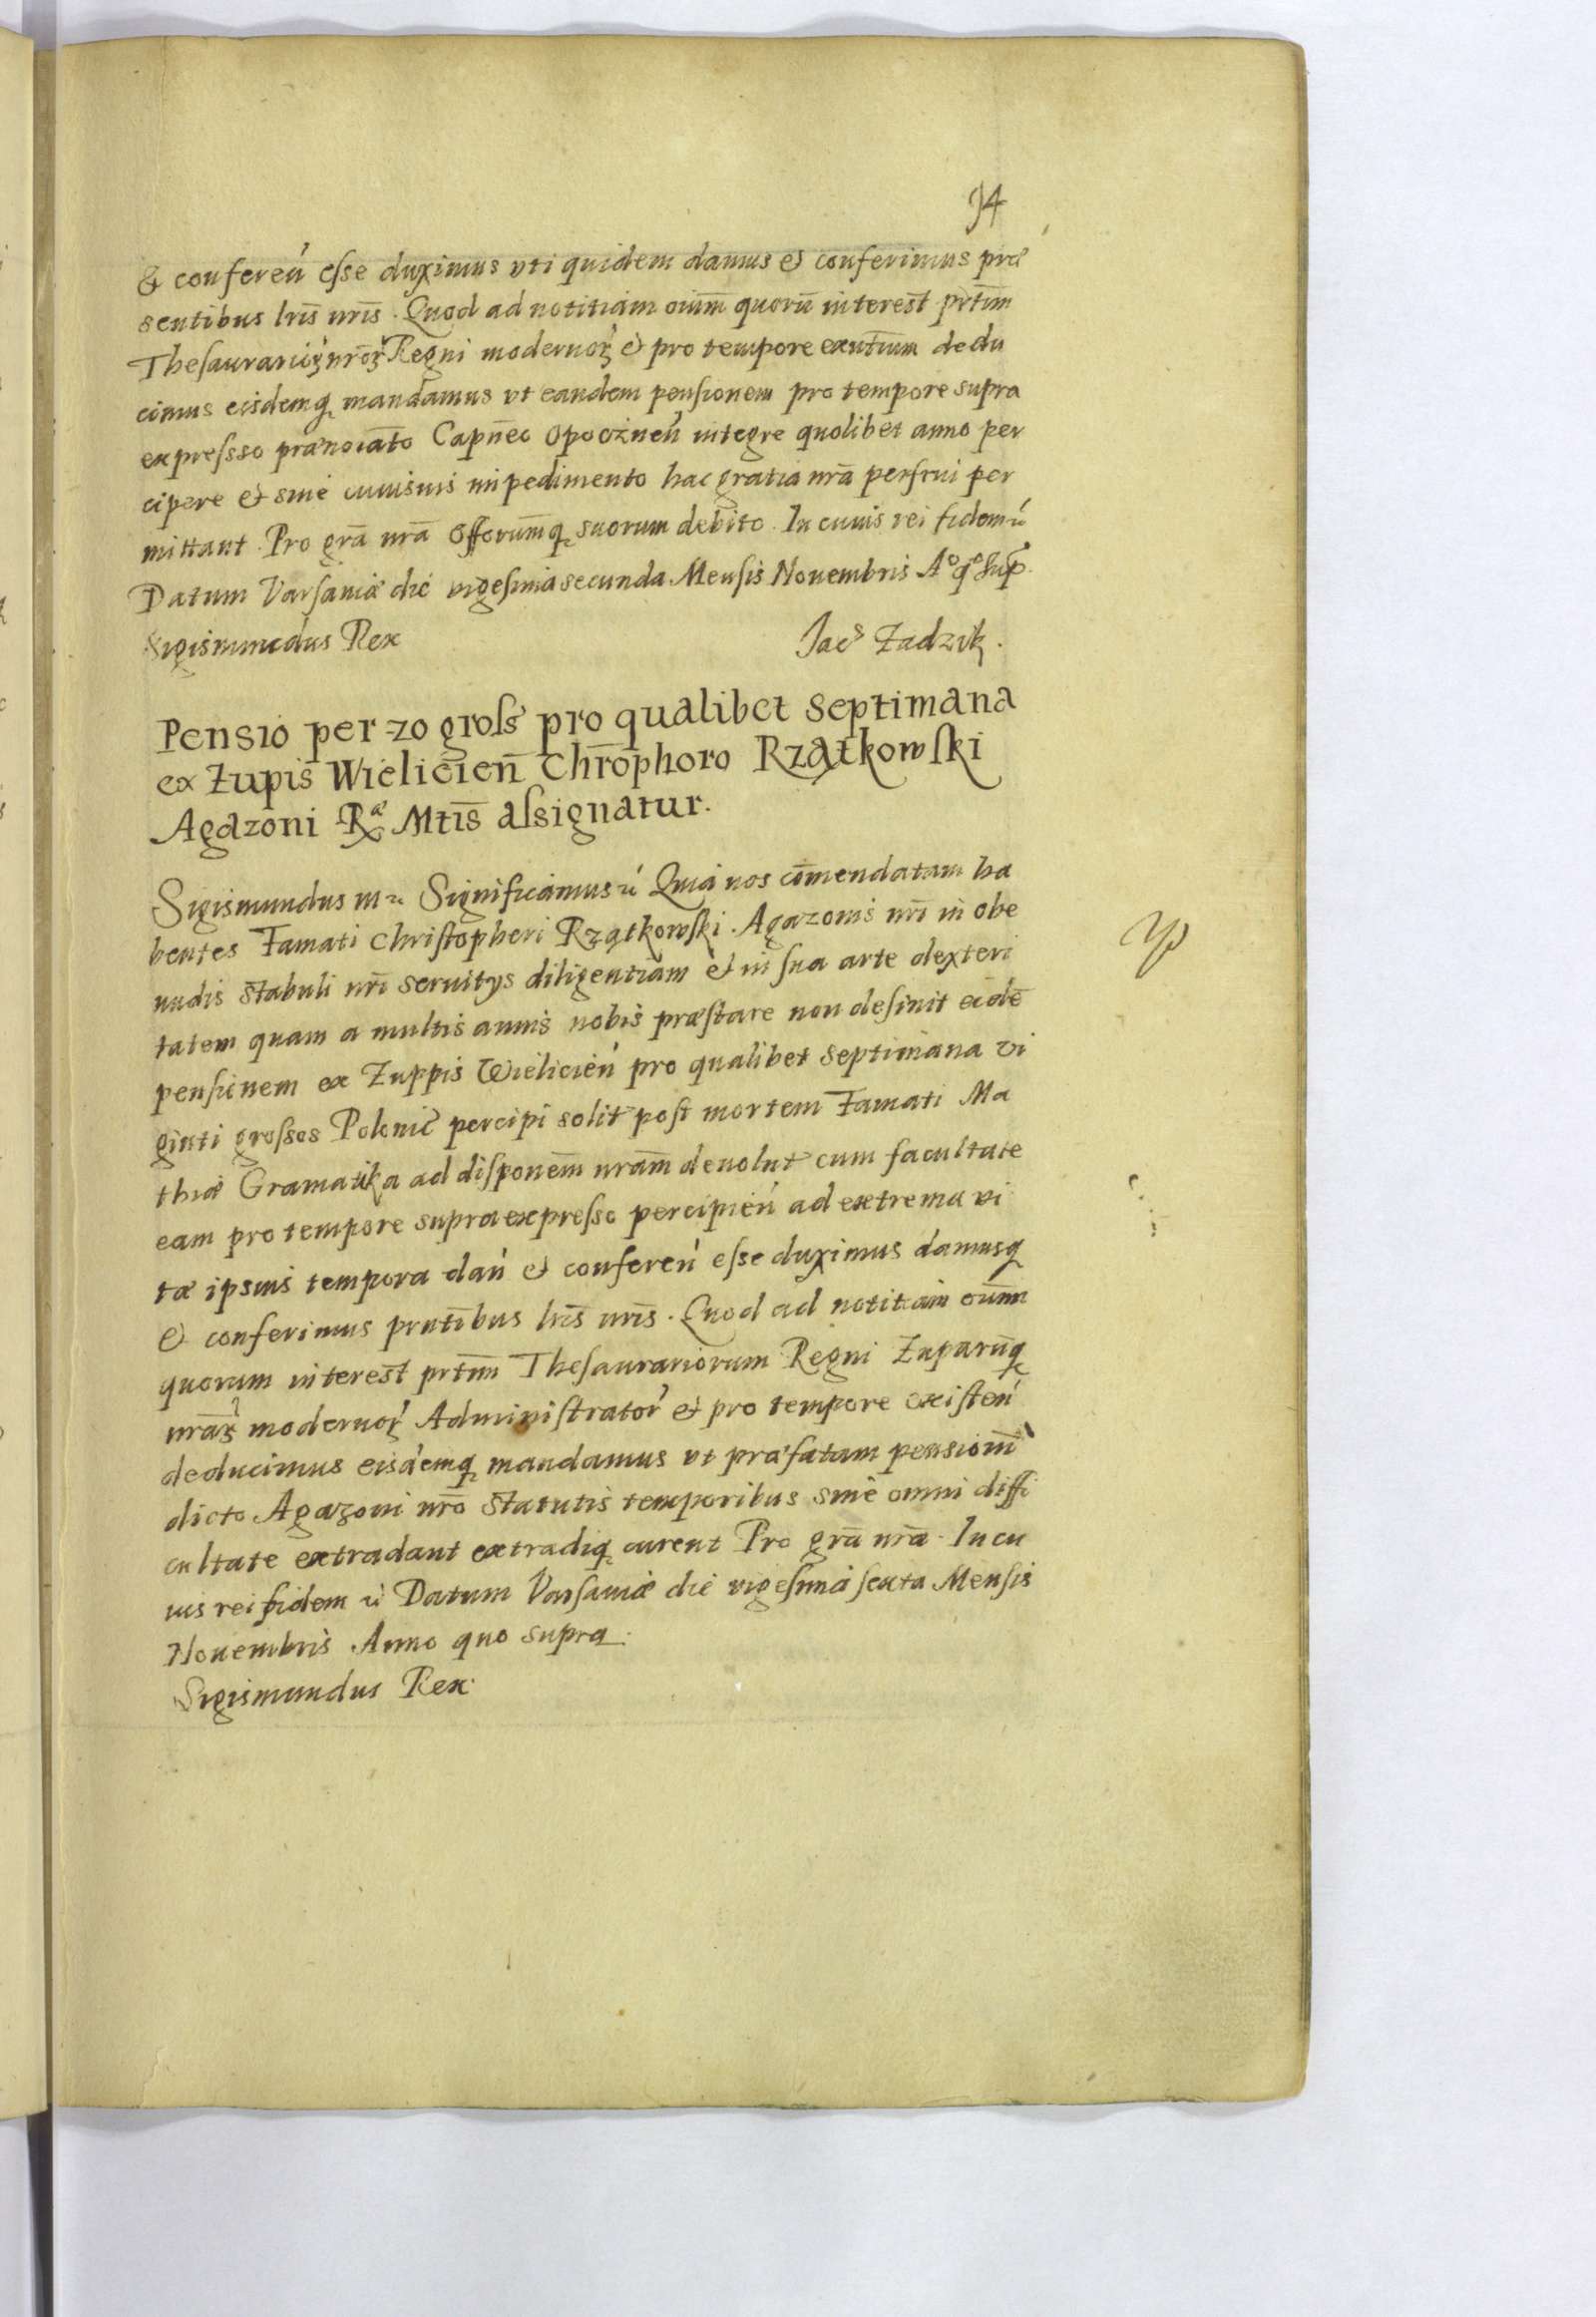 94
& conferen̄ esse duximus vti quidem damus et conferimus præ
sentibus lrīs nrīs. Quod ad notitiam oium̄ quorū interest prt̄im
Thesaurarioꝝ nrōꝝ Regni modernoꝝ et pro tempore exnt̄ium dedu
cimus eisdemqꝫ mandamus vt eandem pensionem pro tempore supra
expressso prænoiāto Capn̄eo Opocznen̄ integre quolibet anno per
cipere et sine cuiusuis impedimento hac gratia nrā perfrui per
mittant. Pro grā nrā Offorum̄qꝫ suorum debito. In cuius rei fidem ꝛc̄
Datum Varsaviæ die vigesima secunda Mensis Nouembris Aº qº Sup.
Sigismundus Rex Jacs Zadzik.
Pensio per 20 gross pro qualibet septimana
ex Zupis Wielicien̄ Chrōphoro Rzątkowski
Agazoni Ræ Mtīs assignatur.
Sigismundus III ꝛc Significamus ꝛc̄ Quia nos cōmendatam ha
bentes Famati Christopheri Rzątkowski. Agazonis nrī in obe
undis stabuli nrī seruitys diligentiam et in sua arte dexteri
tatem quam a multis annis nobis præstare non desinit eidē
pensionem ex Zuppis Wielicien̄ pro qualibet septimana vi
ginti grossos Polonic̄ percipi solit̄ post mortem Famati Ma
thiæ Gramatika ad disponem̄ nram̄ deuolut̄ cum facultate
eam pro tempore supra expresso percipien̄ ad extrema vi
tæ ipsius tempora dan̄ et conferen̄ esse duximus damusqꝫ
et conferimus prntībus lrīs nrīs. Quod ad notitiam oium̄
quorum interest prtīm Thesaurariorum Regni Zuparum̄qꝫ
nrāꝝ modernoꝝ Administrator̄ et pro tempore existen̄
deducimus eisdemqꝫ mandamus vt præfatam pensionem̄
dicto Agazoni nrō statutis temporibus sine omni diffi
cultate extradant extradiqꝫ curent Pro grā nrā. In cu
ius rei fidem ꝛc̄ Datum Varsaviæ die vigesima sexta Mensis
Nouembris Anno quo supra.
Sigismundus Rex